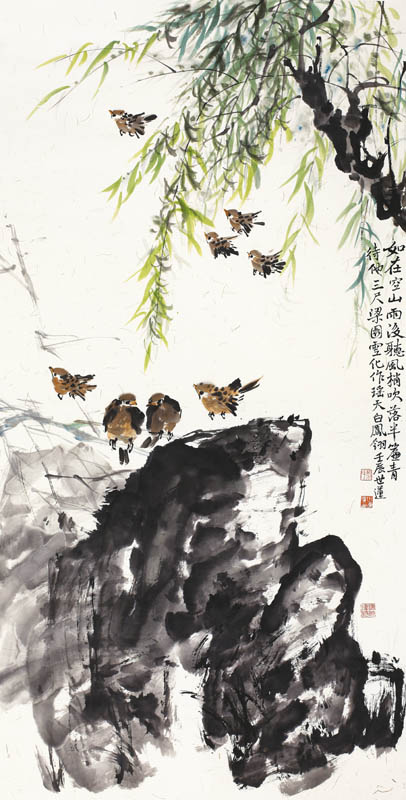 如在空山雨後聽風梢吹落半簾青
待伸三尺梁園雪化作瑤天白鳳翎壬辰世蓮